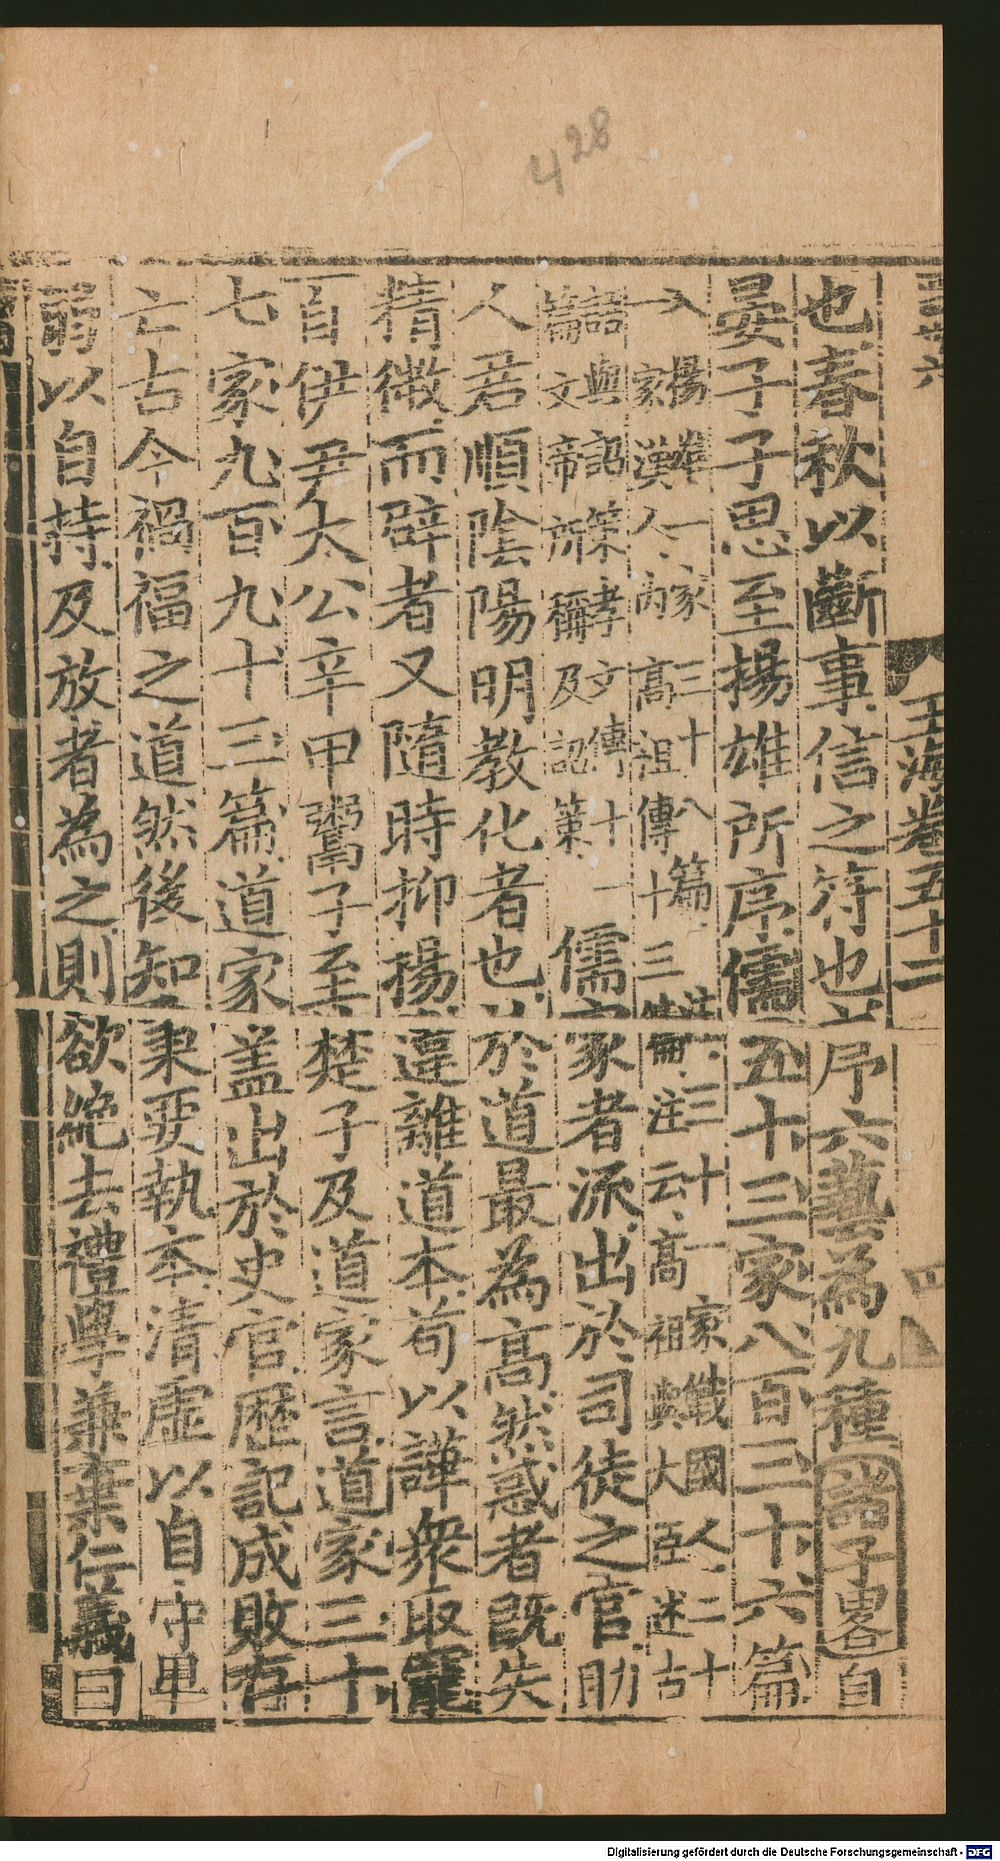 428
玉海卷五十二
四
也春秋以斷事信之符也
序六藝為九種諸子畧自
晏子子思至揚雄所序儒
五十三家八百三十六篇
入揚雄一家三十八篇
三十一家戰國人二十
一家漢人內高祖傳十三篇
注云高祖與大臣述古
語與詔策孝文傳十一
篇文帝所稱及詔策
儒家者流出於司徒之官助
人君順陰陽明教化者也
於道最為高然惑者既失
精微而辟者又隨時抑揚
違離道本苟以譁衆取寵
自伊尹太公辛甲鬻子至
楚子及道家言道家三十
七家九百九十三篇道家
蓋出於史官歷記成敗存
亡古今禍福之道然後知
秉要執本清虛以自守卑
弱以自持及放者為之則
欲絶去禮學兼棄仁義曰
Digitalisierung gefördert durch die Deutsche Forschungsgemeinschaft - DFG